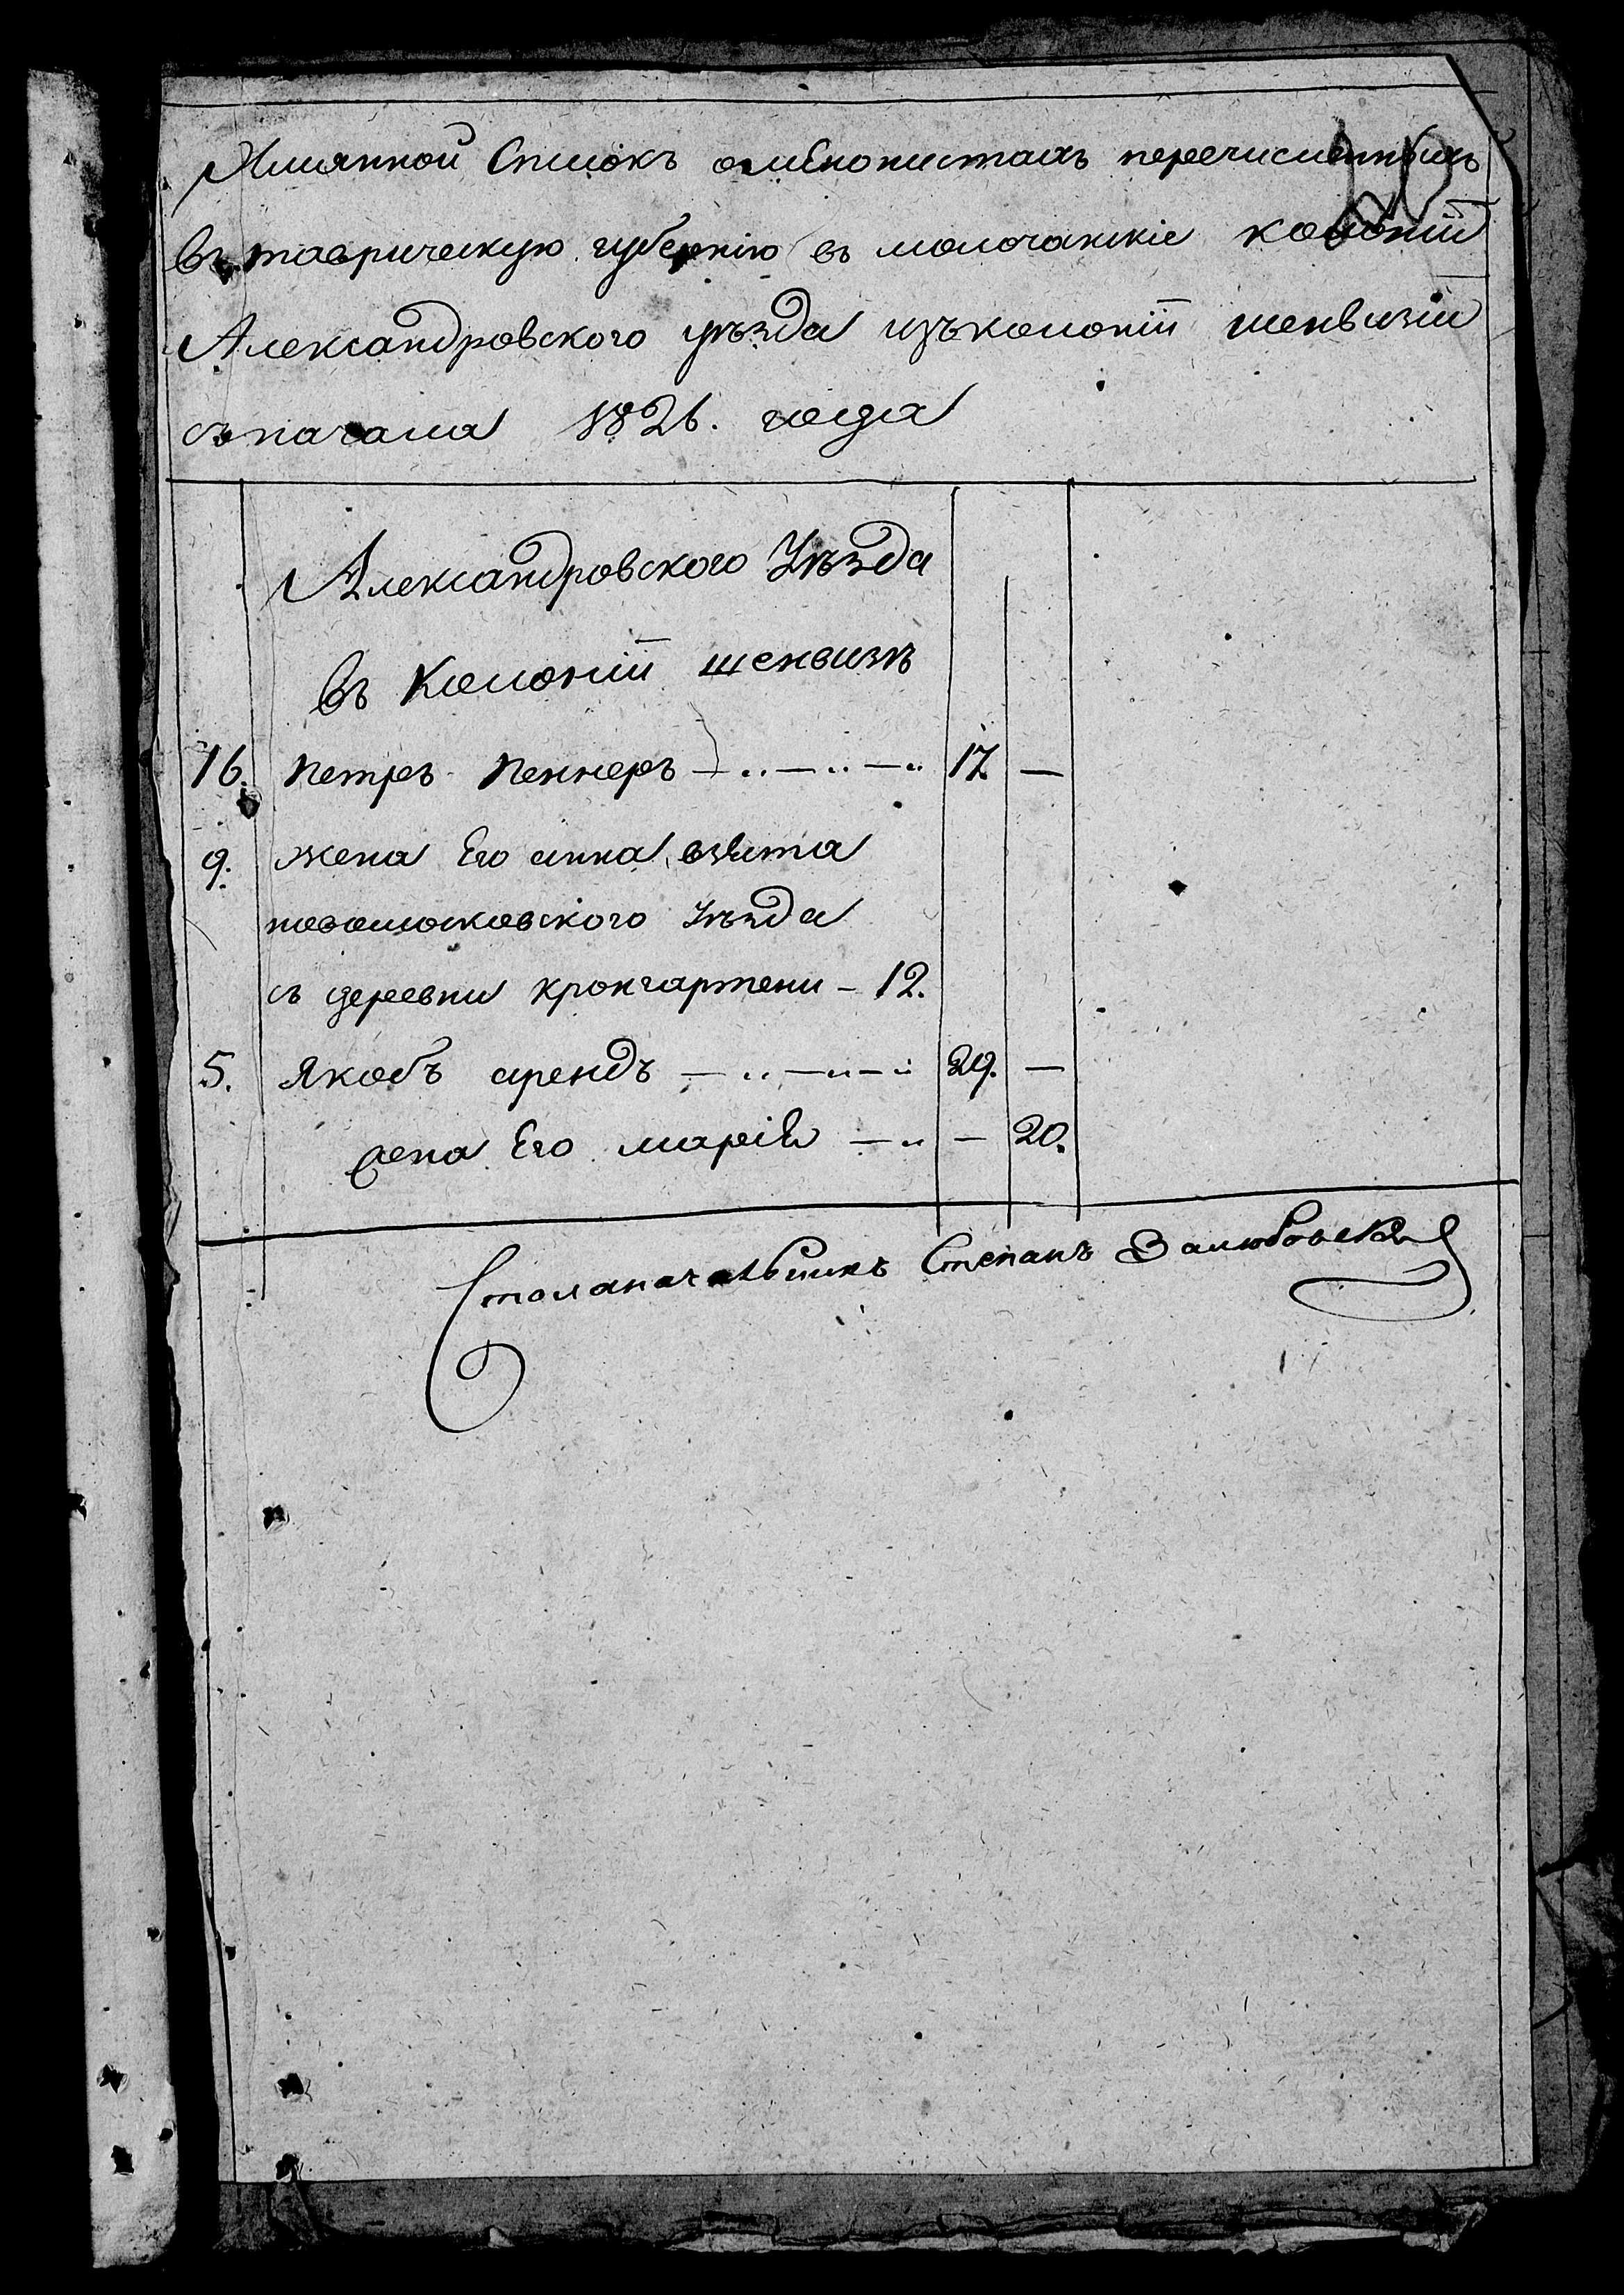 Имянной Списокъ оменонистахъ перечисленныхъ
въ таврическую губернію въ молочанскіе колоніи
Александровского уѣзда изъ колоніи шенвизіи
съ начала 1826. года
Александровского Уѣзда
въ Колоніи шенвизѣ
16. петръ пеннеръ — „ — „ — „ 17 —
9. жена Его анна взята
новомосковского Уѣзда
съ деревни кронгартени – 12.
5. Якобъ арендъ — „ — „ — „ 29. —
жена Его марія — „ — 20.
Столаначальникъ Степанъ Залюбовскій